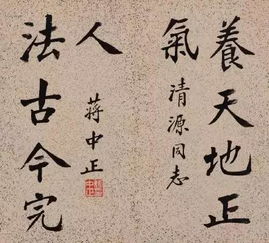 養天地正
氣
清源同志
法古今完
人
蔣中正